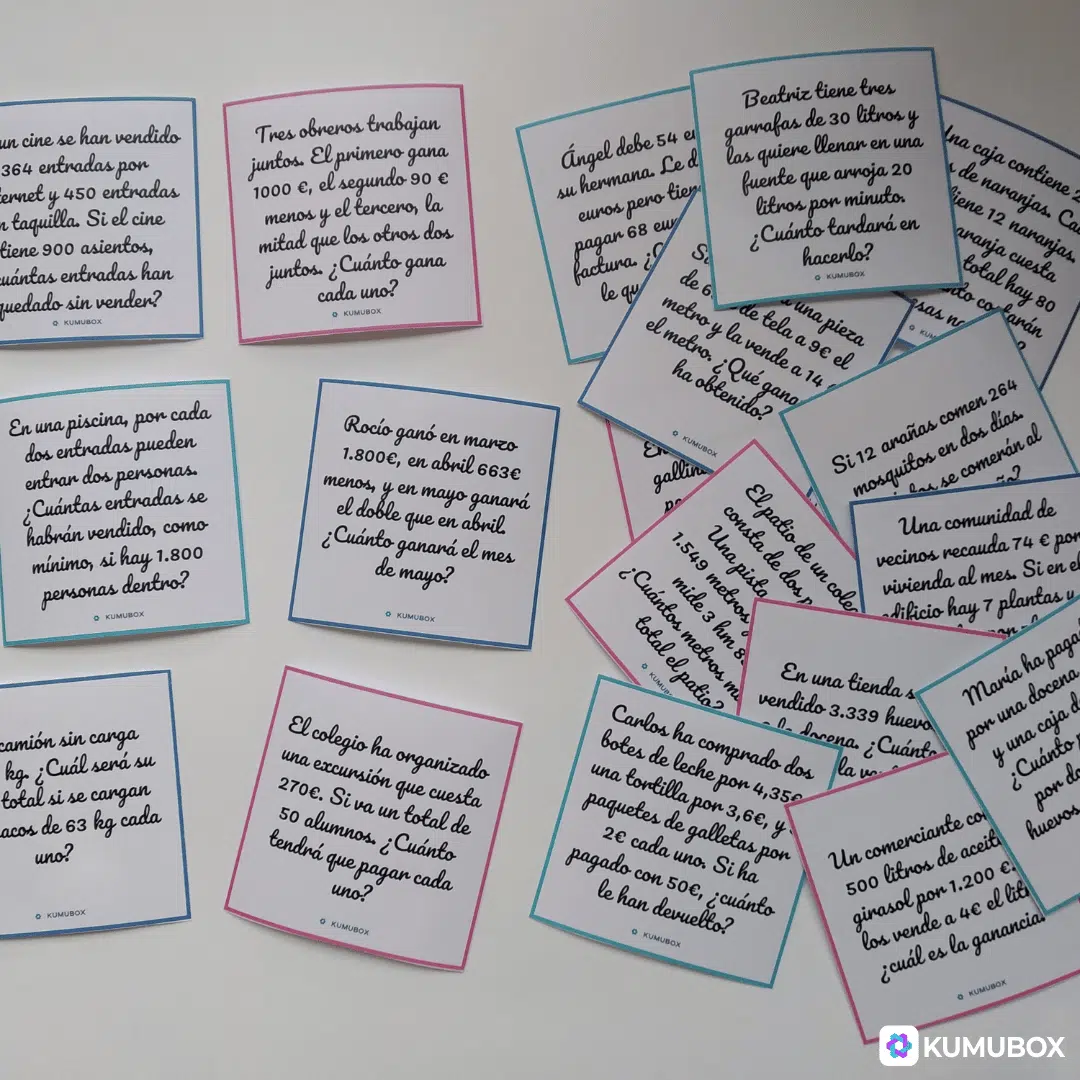 un cine se han vendido
364 entradas por
ternet y 450 entradas
n taquilla. Si el cine
tiene 900 asientos,
cuántas entradas han
quedado sin vender?
KUMUBOX
Tres obreros trabajan
juntos. El primero gana
1000 €, el segundo 90 €
menos y el tercero, la
mitad que los otros dos
juntos. ¿Cuánto gana
cada uno?
KUMUBOX
Ángel debe 54 e
su hermana. Le d
euros pero tien
pagar 68 eur
factura. ¿C
le qu
Beatriz tiene tres
garrafas de 30 litros y
las quiere llenar en una
fuente que arroja 20
litros por minuto.
¿Cuánto tardará en
hacerlo?
KUMUBOX
na caja contiene 2
s de naranjas. Ca
iene 12 naranjas.
aranja cuesta
total hay 80
nto costarán
sas na
KUM
S
una pieza
de 6 de tela a 9€ el
metro y la vende a 14
el metro. ¿Qué gana
ha obtenido?
KUMUBOX
Si 12 arañas comen 264
mosquitos en dos días.
se comerán al
En una piscina, por cada
dos entradas pueden
entrar dos personas.
¿Cuántas entradas se
habrán vendido, como
mínimo, si hay 1.800
personas dentro?
KUMUBOX
Rocío ganó en marzo
1.800€, en abril 663€
menos, y en mayo ganará
el doble que en abril.
¿Cuánto ganará el mes
de mayo?
KUMUBOX
En
gallin
po
El patio de un coleg
consta de dos p
Una pista
1.549 metros
mide 3 hm 8
¿Cuántos metros m
total el patio?
KUMUB
Una comunidad de
vecinos recauda 74 € por
vivienda al mes. Si en el
edificio hay 7 plantas y
En una tienda s
vendido 3.339 huevo
docena. ¿Cuánto
la v
María ha pagad
por una docena
y una caja d
¿Cuánto p
por do
huevos
camión sin carga
kg. ¿Cuál será su
total si se cargan
acos de 63 kg cada
uno?
KUMUBOX
El colegio ha organizado
una excursión que cuesta
270€. Si va un total de
50 alumnos. ¿Cuánto
tendrá que pagar cada
uno?
KUMUBOX
Carlos ha comprado dos
botes de leche por 4,35€
una tortilla por 3,6€, y
paquetes de galletas por
2€ cada uno. Si ha
pagado con 50€, ¿cuánto
le han devuelto?
KUMUBOX
Un comerciante co
500 litros de aceit
girasol por 1.200 €.
los vende a 4€ el lit
¿cuál es la ganancia
KUMUBOX
KUMUBOX